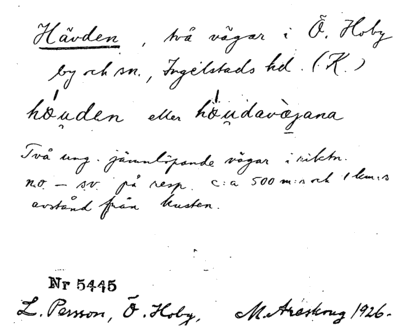 Hävden, två vägar i Ö. Hoby
by och sn., Ingelstads hd. (K.)
höu̯den eller höu̯davæjana
Två ung. jämnlöpande vägar i riktn.
no – sv. på resp. c:a 500 m:s och 1 km:s
avstånd från kusten.
Nr 5445
L. Persson, Ö. Hoby, M. Areskoug 1926.